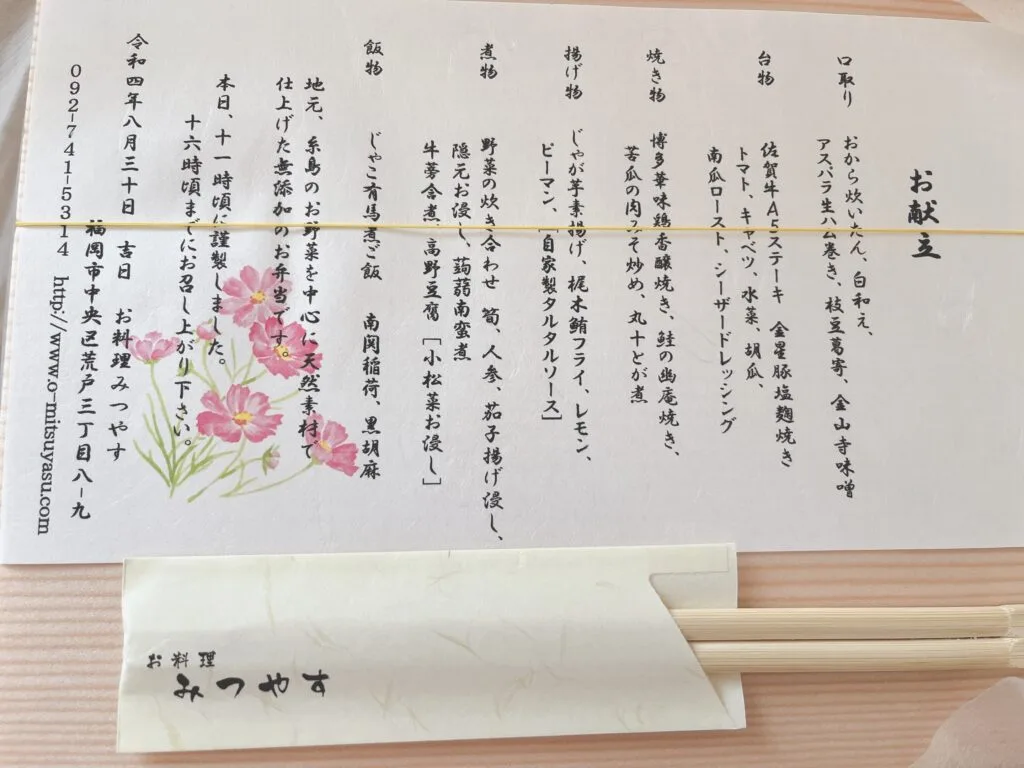 お献立
口取り　おから炊いたん、白和え、
アスパラ生ハム巻き、枝豆葛寄、金山寺味噌
台物　佐賀牛A5ステーキ　金星豚塩麹焼き
トマト、キャベツ、水菜、胡瓜、
南瓜ロースト、シーザードレッシング
焼き物　博多華味鶏香醸焼き、鮭の幽庵焼き、
苦瓜の肉みそ炒め、丸十とが煮
揚げ物　じゃが芋素揚げ、梶木鮪フライ、レモン、
ピーマン、［自家製タルタルソース］
煮物　野菜の炊き合わせ　筍、人参、茄子揚げ浸し、
隠元お浸し、蒟蒻南蛮煮
牛蒡含煮、高野豆腐　［小松菜お浸し］
飯物　じゃこ有馬煮ご飯　南関稲荷、黒胡麻
地元、糸島のお野菜を中心に天然素材で
仕上げた無添加のお弁当です。
本日、十一時頃に謹製しました。
十六時頃までにお召し上がり下さい。
令和四年八月三十日　吉日　お料理みつやす
福岡市中央区荒戸三丁目八-九
092-741-5314　http://www.o-mitsuyasu.com
お料理
みつやす